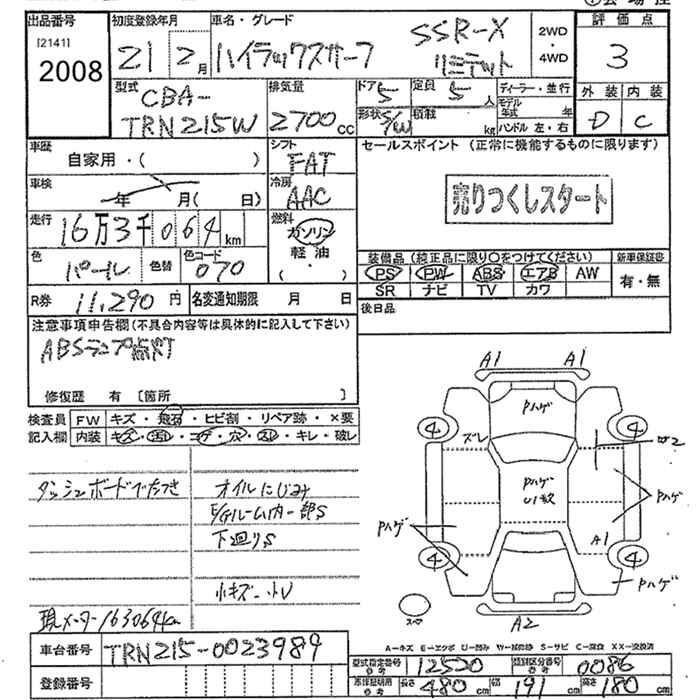 出品番号
[2141]
2008
初度登録年月
21 2月
車名・グレード
ハイラックスサーフ SSR-X リミテット
2WD
・
4WD
評価点
3
外装 内装
D C
型式
CBA-
TRN215W
排気量
2700cc
ドア 5
定員 5 人
形状 S/W
積載 kg
ディーラー・並行
モデル年式 年
ハンドル 左・右
車歴
自家用・( )
シフト
FAT
車検
年 月( 日)
冷房
AAC
走行
16万3千064km
燃料
ガソリン
軽油
・
( )
色 パール 色替 色コード 070
R券 11,290円 名変通知期限 月 日
セールスポイント (正常に機能するものに限ります)
売りつくしスタート
装備品 (純正品に限り○をつけてください)
新車保証書
PS PW ABS エアB AW
有・無
SR ナビ TV カワ
後日品
注意事項申告欄 (不具合内容等は具体的に記入して下さい)
ABSランプ点灯
修復歴 有 〔箇所 〕
検査員 FW キズ・飛石・ヒビ割・リペア跡・×要
記入欄 内装 キズ・汚レ・コゲ・穴・スレ・キレ・破レ
ダッシュボードベたつき
オイルにじみ
E/Gルーム内一部S
下廻りS
小キズ 小U
現メーター 163064km
A1 A1
Pハゲ
4 4
ズレ
Pハゲ
U1 数
Pハゲ
Pハゲ
A1
4 4
Pハゲ
スペア
A2
車台番号 TRN215-0023989
登録番号
A-キズ E-エクボ U-凹み W-補修跡 S-サビ C-腐食 XX-交換済
型式指定番号 12520 類別区分番号 0086
長さ 480cm 幅 191cm 高さ 180cm